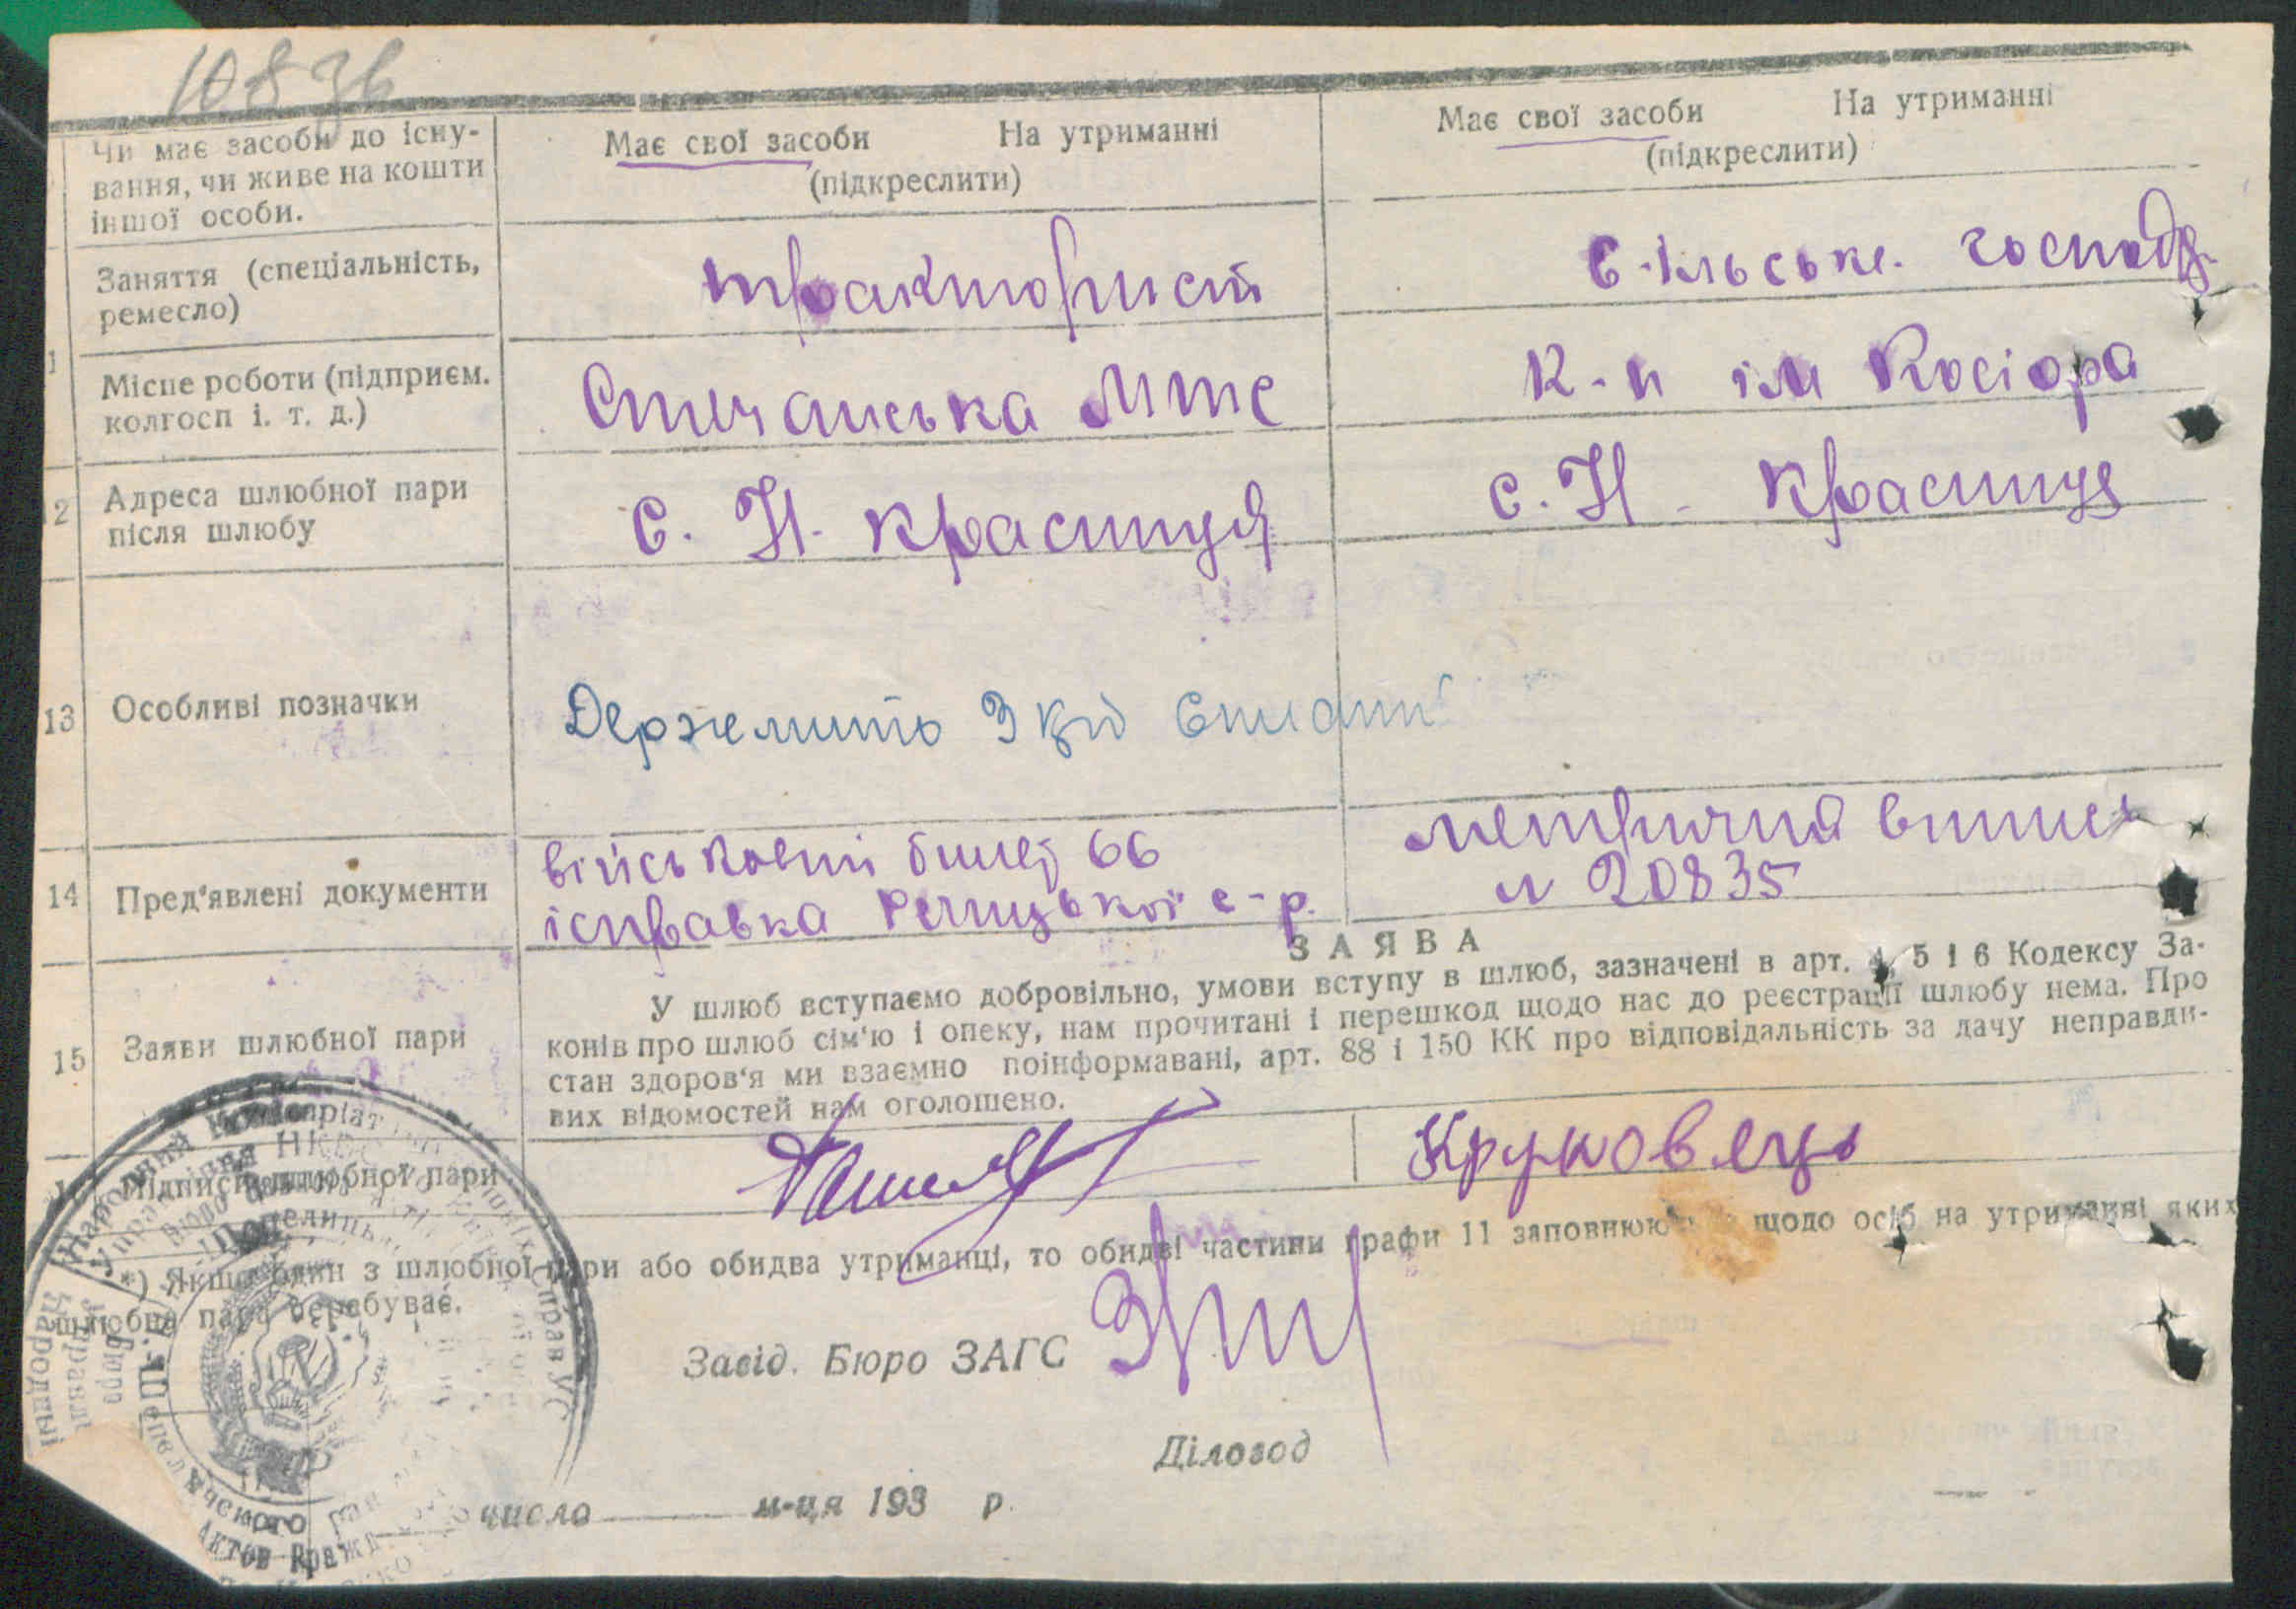 10836
Чи має засоби до існу-
вання, чи живе на кошти
іншої особи.
Має свої засоби На утриманні
(підкреслити)
Має свої засоби На утриманні
(підкреслити)
Заняття (спеціальність,
ремесло)
тракторист
Сільське. господ.
1
Місце роботи (підприєм.
колгосп і. т. д.)
МТС
к-п ім Косіора
12
Адреса шлюбної пари
після шлюбу
С. Н. Красниця
с. Н - Красниця
13
Особливі позначки
14
Пред'явлені документи
військовий билет 66
ісправка с-р.
метричний випись
№ 20835
15
Заяви шлюбної пари
ЗАЯВА
У шлюб вступаємо добровільно, умови вступу в шлюб, зазначені в арт. 4, 5 і 6 Кодексу За-
конів про шлюб сім'ю і опеку, нам прочитані і перешкод щодо нас до реєстрації шлюбу нема. Про
стан здоров'я ми взаємно поінформавані, арт. 88 і 150 КК про відповідальність за дачу неправди-
вих відомостей нам оголошено.
Підписи шлюбної пари
Круковець
*) Якщо один з шлюбної пари або обидва утриманці, то обидві частини графи 11 заповнюють щодо осіб на утриманні яких
шлюбна пара перебуває.
Завід. Бюро ЗАГС
Діловод
число м-ця 193 р.
Народний Комісаріат Справ УС
Управління НКВС
Бюро